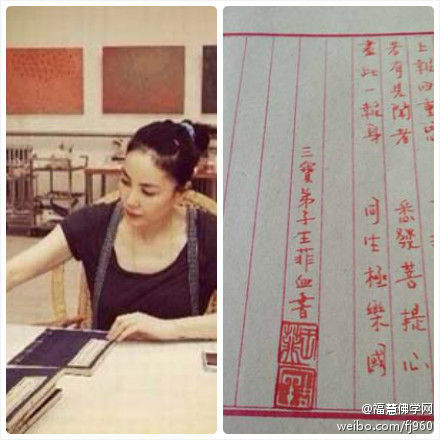 上報四重恩
若有見聞者 悉發菩提心
盡此一報身 同生極樂國
三寶弟子王菲血書
@福慧佛学网
weibo.com/fj960